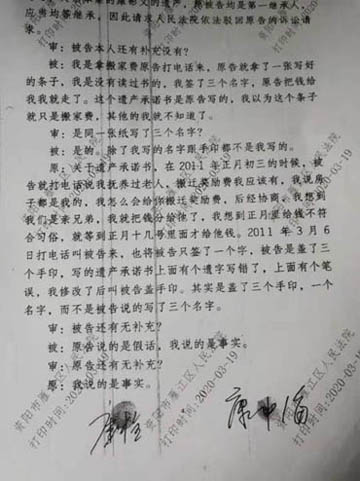 应当均等继承，因此请求人民法院依法驳回原告的诉讼请
求。
审：被告本人还有补充没有？
被：我是拿搬家费原告打电话来，原告就拿了一张写好
的条子，我是没有读过书的，我签了三个名字，原告把钱给
我我就走了。这个遗产承诺书是原告写的，我以为这个条子
就只是搬家费，其他的我就不知道了。
审：是同一张纸写了三个名字？
被：是的。除了我写的名字跟手印都不是我写的。
原：关于遗产承诺书，在 2011 年正月初三的时候，被
告就打电话说我抚养过老人，搬迁奖励费我应该有，我说房
子都是我的，我怎么会给你搬迁奖励费，后经协商，我想到
我们是亲兄弟，我就把钱分给他了，我想到正月里给钱不符
合习俗，就等到正月十九号里面才给他钱。2011 年 3 月 6
日打电话叫被告来，也将被告只签了一个字，被告是盖了三
个手印，写的遗产承诺书上面有个遗字写错了，上面有个笔
误，我修改了后叫被告盖手印。其实是盖了三个手印，一个
名字，而不是被告说的写了三个名字。
审：被告还有无补充？
被：原告说的是假话，我说的是事实。
审：原告还有无补充？
原：我说的是事实。
资阳市雁江区人民法院
打印时间:2020-03-19